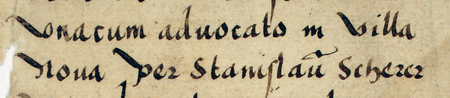 vnacum aduocato in villa
Noua per Stanislaū Scherer